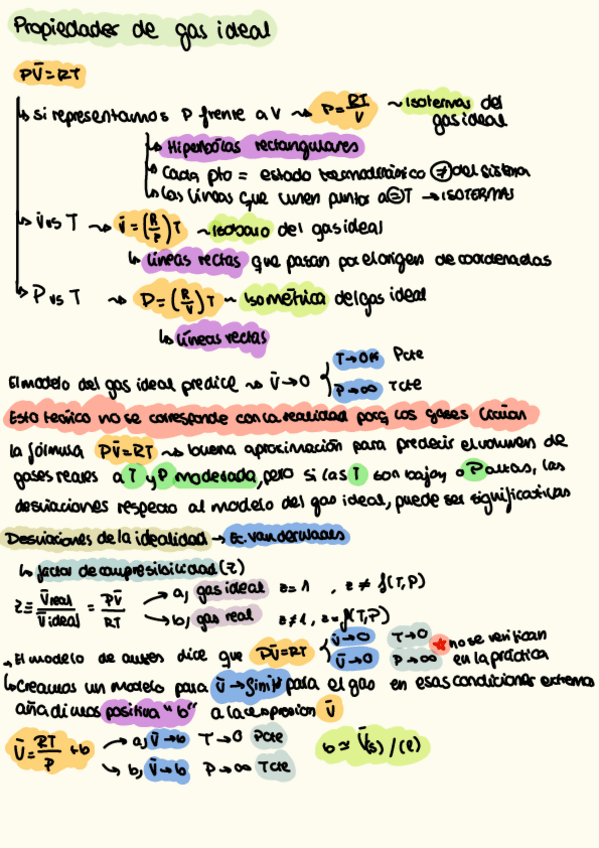 Propiedades de gas ideal
PV̄ = RT
↳ si representamos P frente a V ⇝ P = RT/V ~ isotermas del gas ideal
↳ Hiperbólas rectangulares
↳ Cada pto = estado termodinámico ≠ del sistema
↳ Las líneas que unen puntos a = T → ISOTERMAS
↳ V̄ vs T ⇝ V̄ = (R/P) T ~ isobara del gas ideal
↳ líneas rectas que pasan por el origen de coordenadas
↳ P vs T ⇝ P = (R/V̄) T ~ isométrica del gas ideal
↳ líneas rectas
El modelo del gas ideal predice ⇝ V̄ → 0 { T → 0K Pcte
P → ∞ Tcte
Esto teórico no se corresponde con la realidad porq los gases licúan
la fórmula PV̄ = RT ⇝ buena aproximación para predecir el volumen de
gases reales a T y P moderada, pero si las T son bajas o P altas, las
desviaciones respecto al modelo del gas ideal, puede ser significativas
Desviaciones de la idealidad → Ec. Van der Waals
↳ factor de compresibilidad (z)
z ≡ V̄real / V̄ideal = PV̄ / RT → a, gas ideal z = 1 , z ≠ f(T,P)
→ b, gas real z ≠ 1, z = f(T,P)
→ El modelo de antes dice que PV̄ = RT { V̄ → 0 T → 0
V̄ → 0 P → ∞ * no se verifican en la práctica
↳ Creamos un modelo para V̄ → finito para el gas en esas condiciones extremas
añadimos positiva "b" a la expresion V̄
V̄ = RT/P + b → a, V̄ → b T → 0 Pcte
→ b, V̄ → b P → ∞ Tcte
b ≃ V̄(s) / (l)